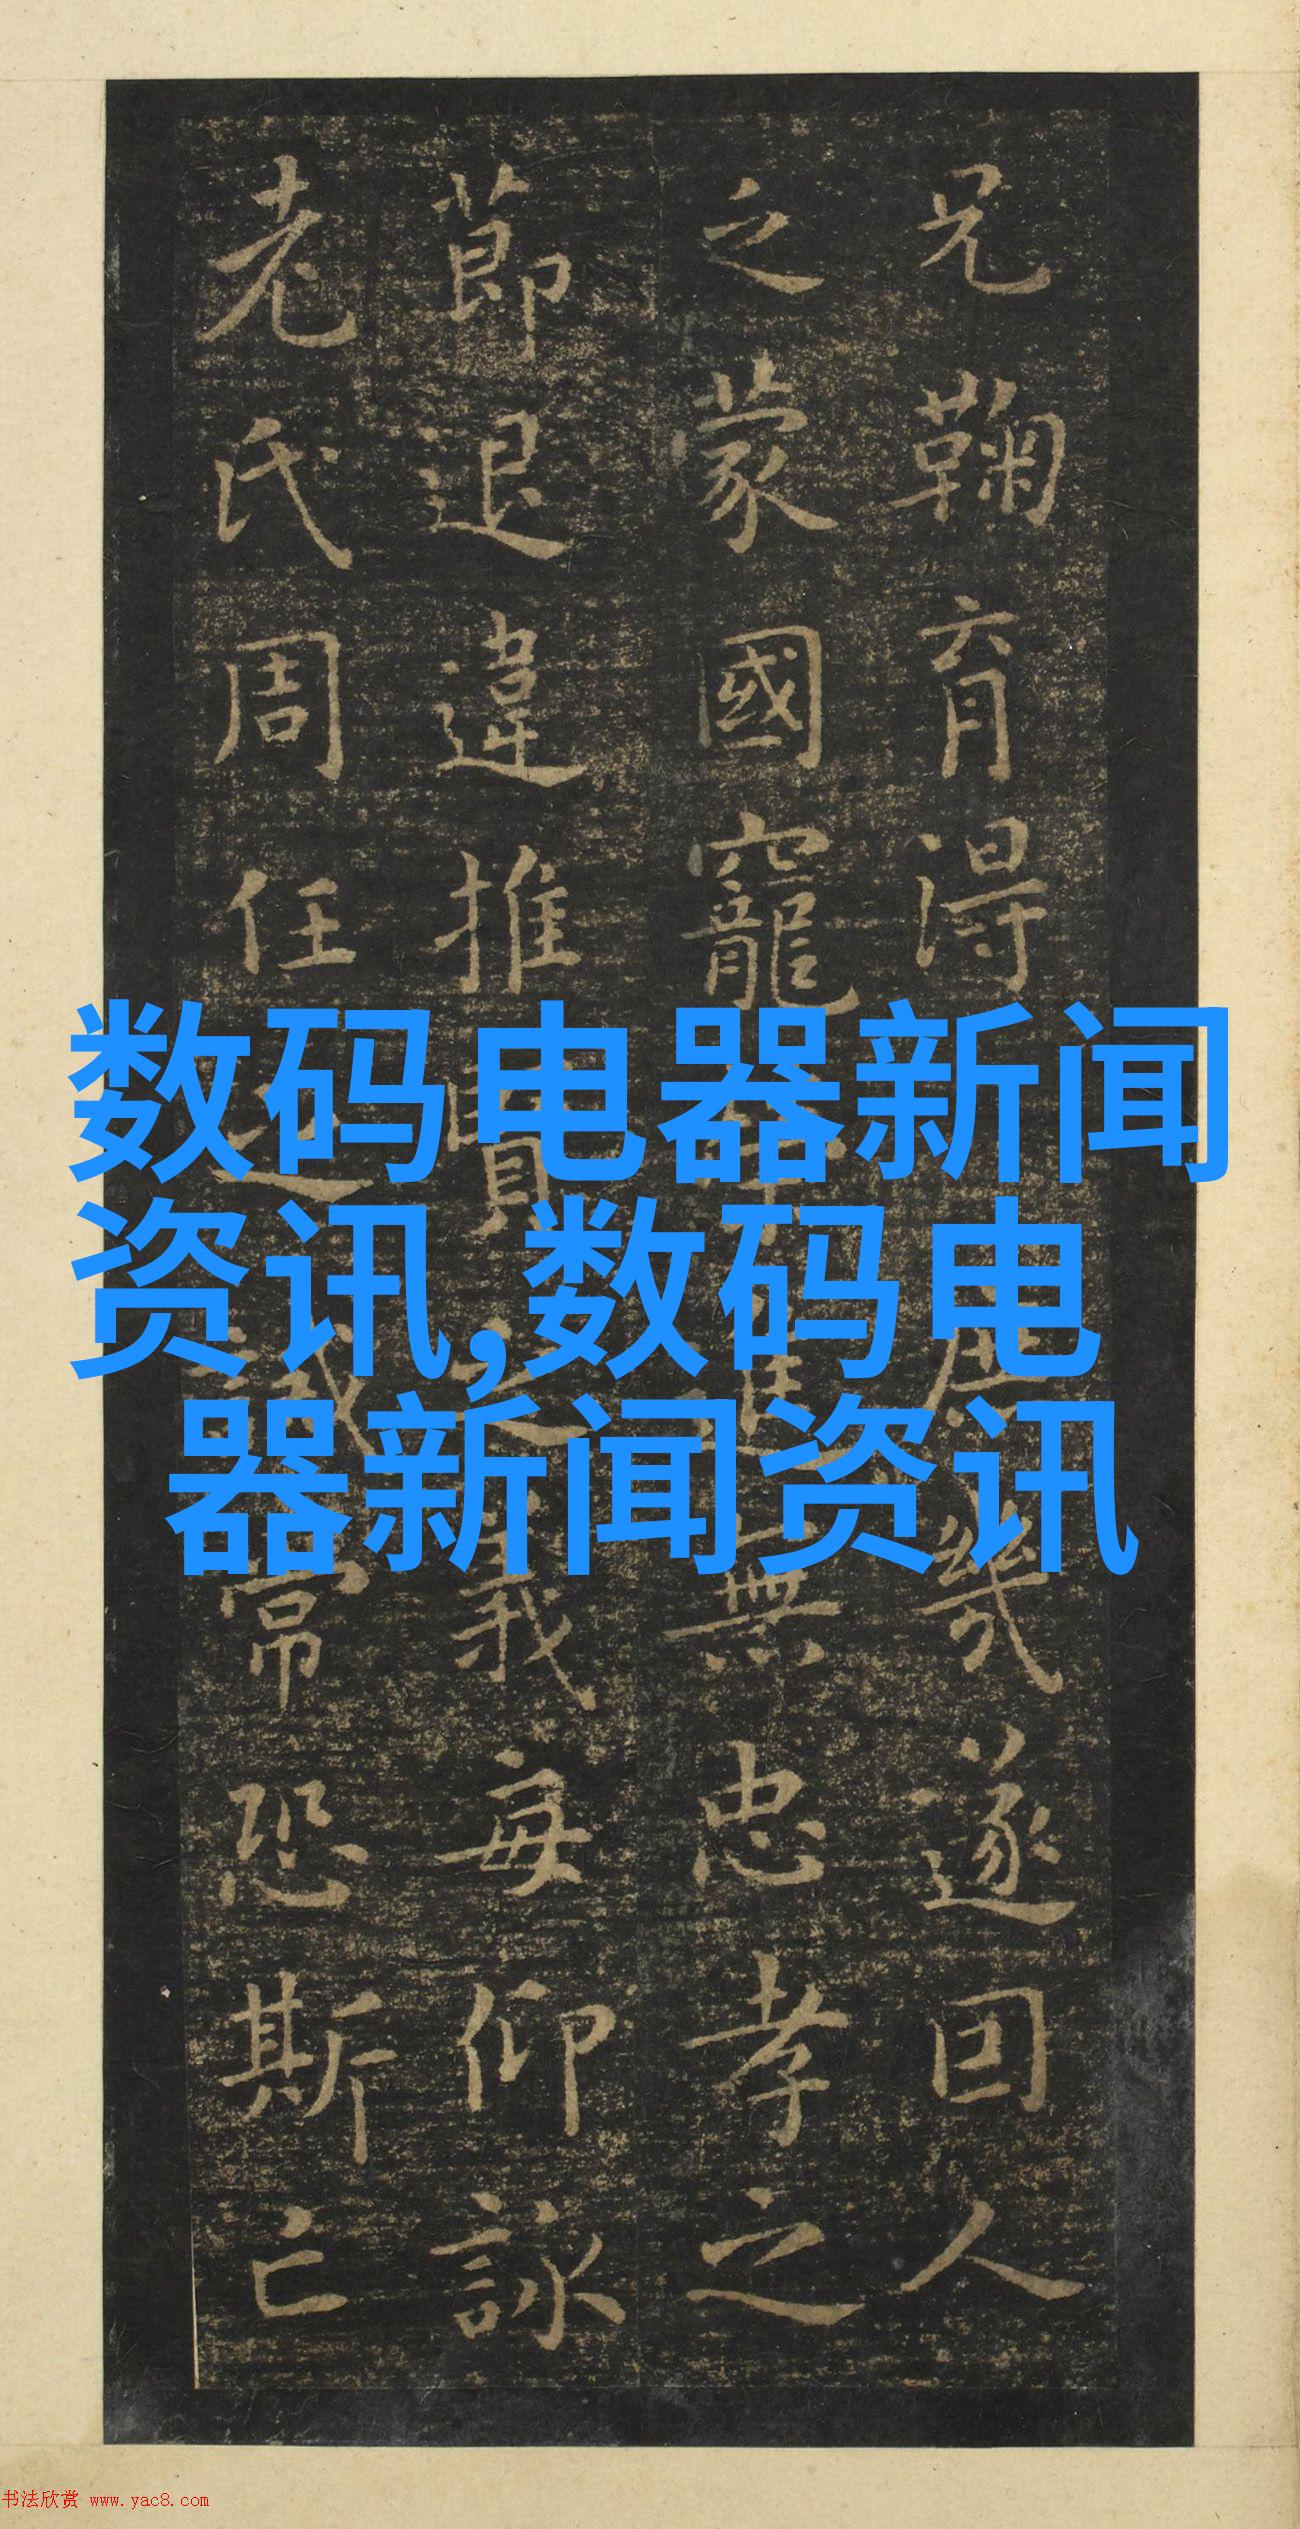 兄鞠育淂庶幾遂回人
之蒙國寵進無忠孝之
莭退違推賢之義每仰詠
老氏周任之誡常恐斯亡
数码电器新闻
资讯,数码电
器新闻资讯
书法欣赏 www.yac8.com